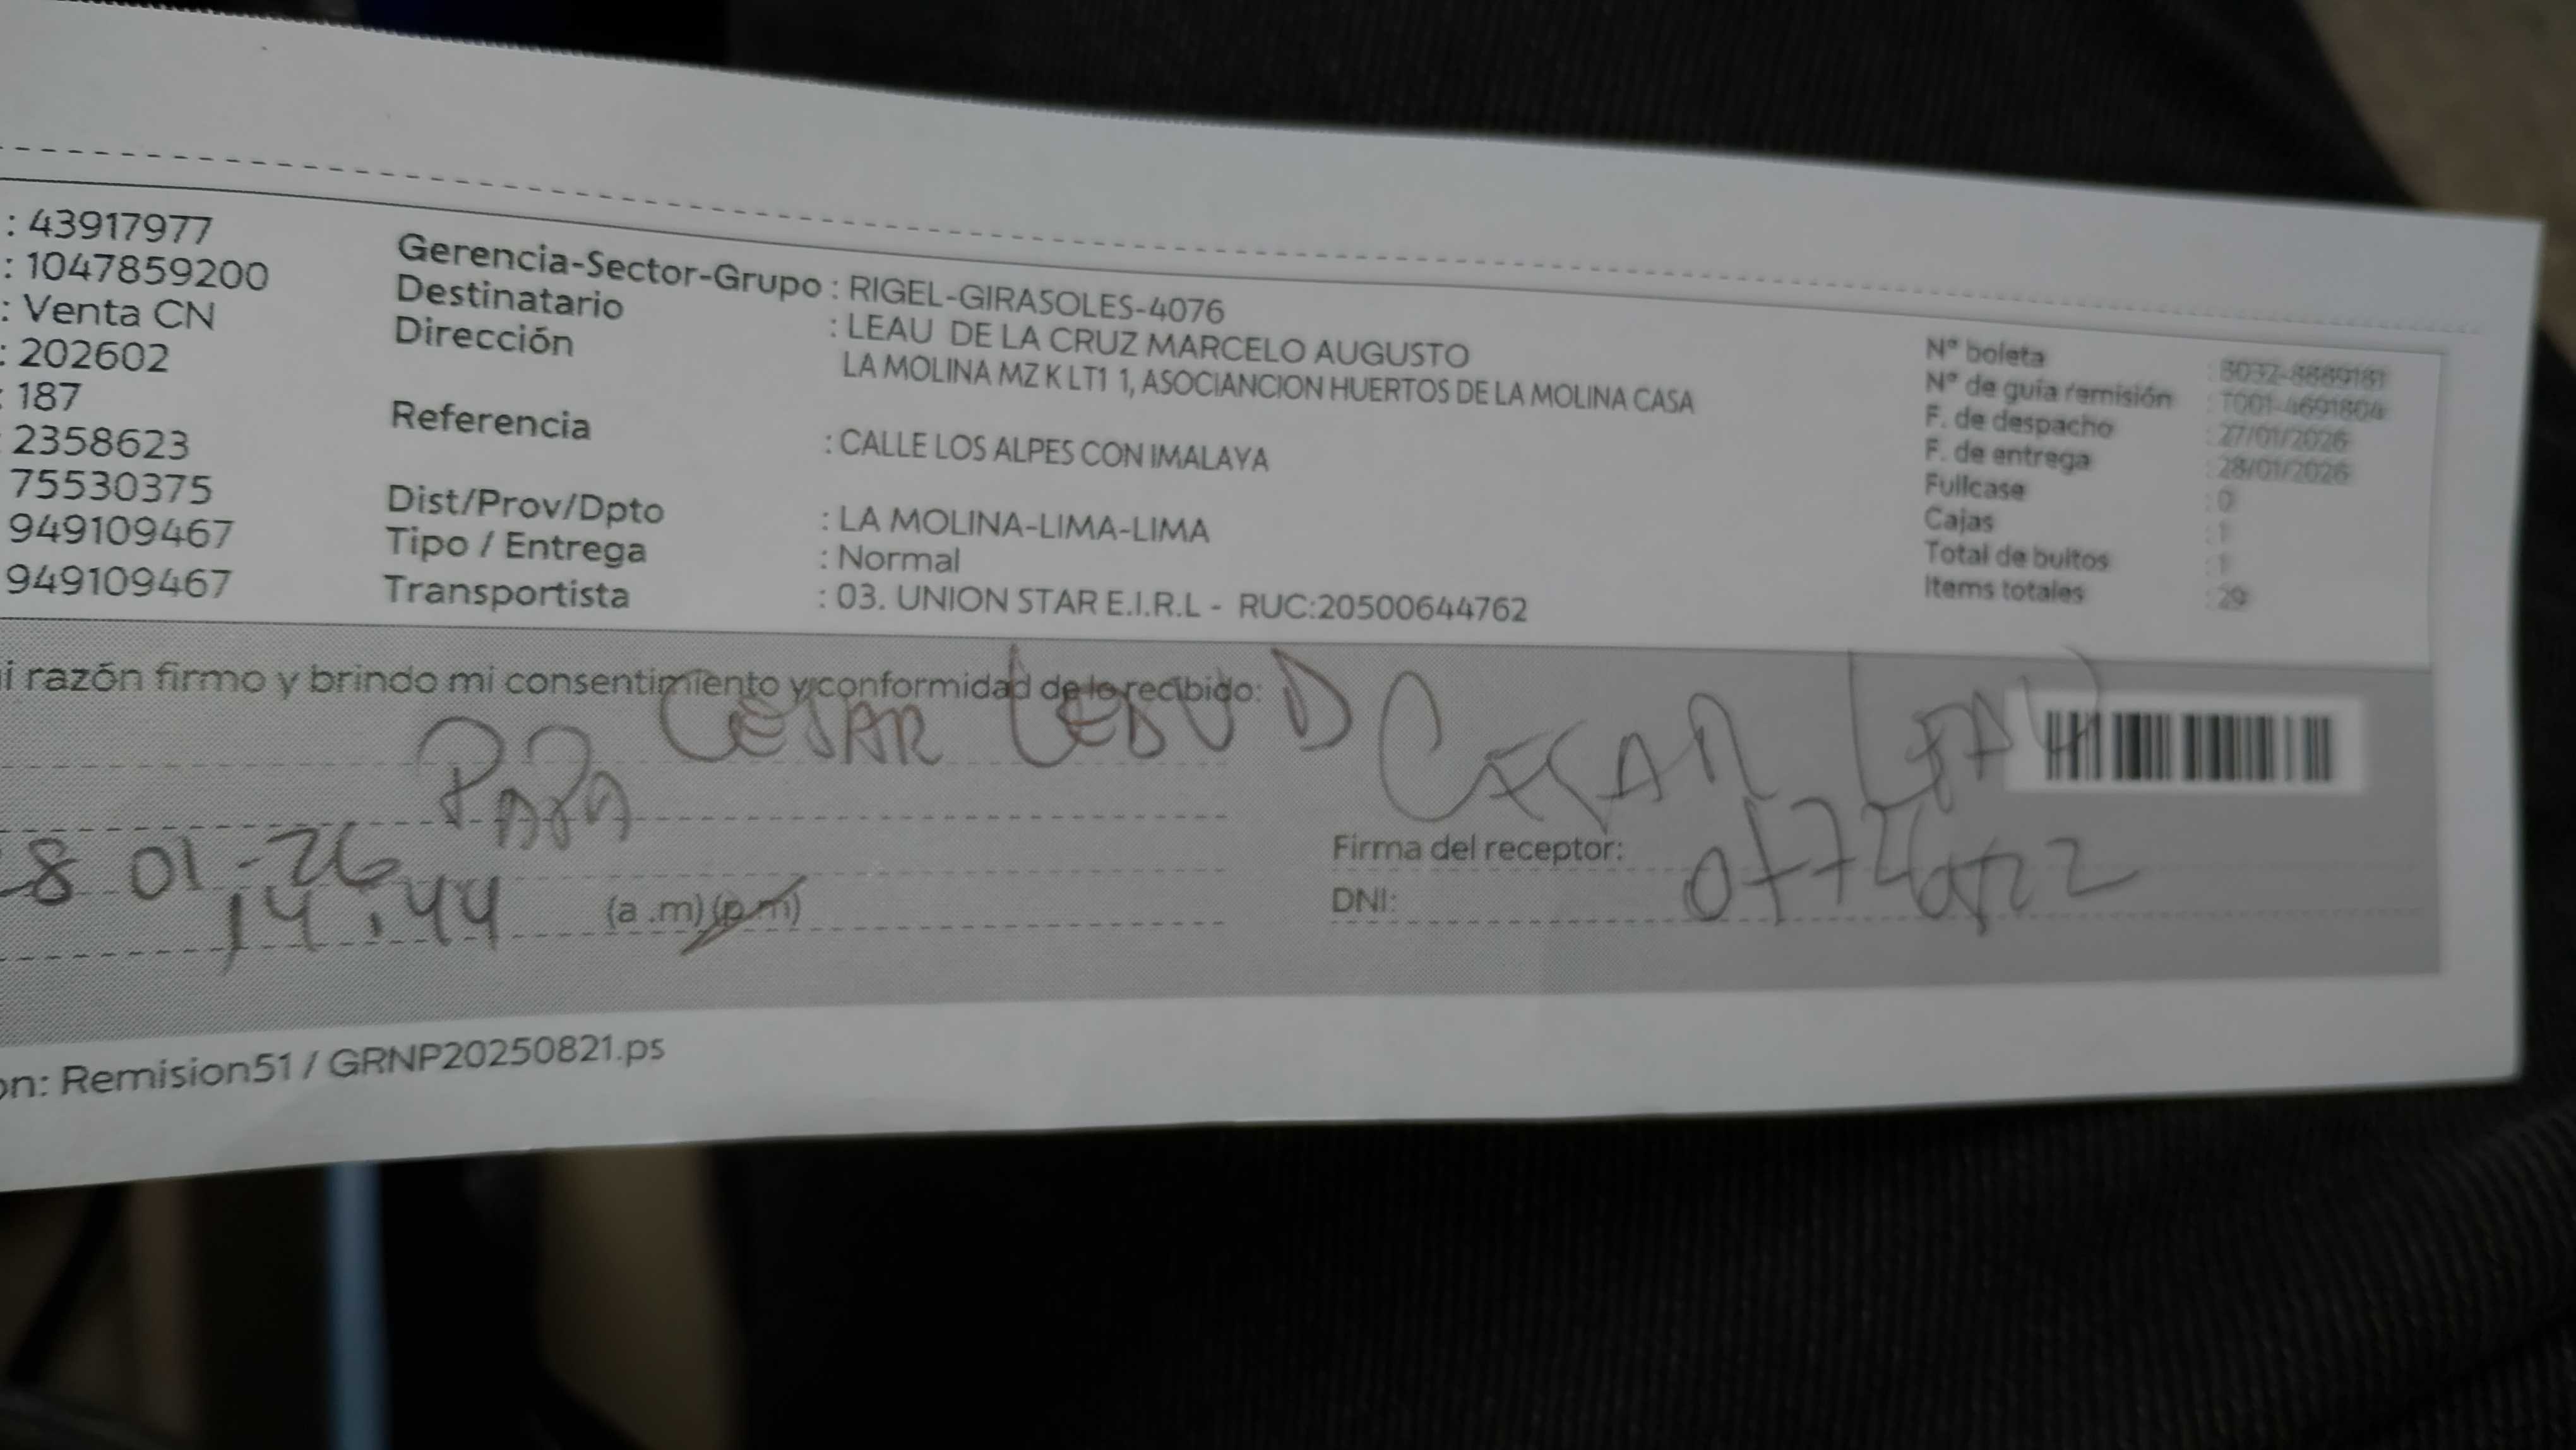 : 43917977
: 1047859200
: Venta CN
: 202602
: 187
2358623
75530375
949109467
949109467
Gerencia-Sector-Grupo : RIGEL-GIRASOLES-4076
Destinatario : LEAU DE LA CRUZ MARCELO AUGUSTO
Dirección LA MOLINA MZ K LT1 1, ASOCIANCION HUERTOS DE LA MOLINA CASA
Referencia : CALLE LOS ALPES CON IMALAYA
Dist/Prov/Dpto : LA MOLINA-LIMA-LIMA
Tipo / Entrega : Normal
Transportista : 03. UNION STAR E.I.R.L - RUC:20500644762
N° boleta
N° de guía remisión : T001-4691804
F. de despacho : 27/01/2026
F. de entrega : 28/01/2026
Fullcase : 0
Cajas : 1
Total de bultos : 1
Items totales : 29
i razón firmo y brindo mi consentimiento y conformidad de lo recibido:
CESAR LEAU D
PAPA
8 01-26
14:44 (a .m) (p.m)
CESAR LEAU
Firma del receptor:
DNI:
on: Remision51 / GRNP20250821.ps